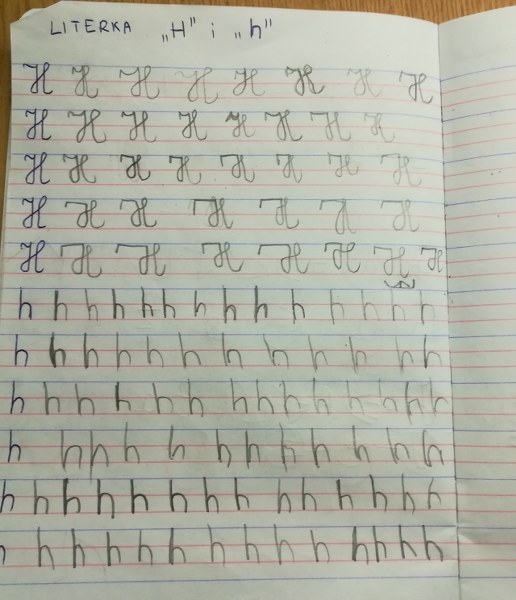 LITERKA „H" i „h"
H H H H H H H H
H H H H H H H H
H H H H H H H H
H H H H H H H
H H H H H H H H
h h h h h h h h h h h h h h
h h h h h h h h h h h h
h h h h h h h h h h h h h h
h h h h h h h h h h h h
h h h h h h h h h h h h h h
h h h h h h h h h h h h h h